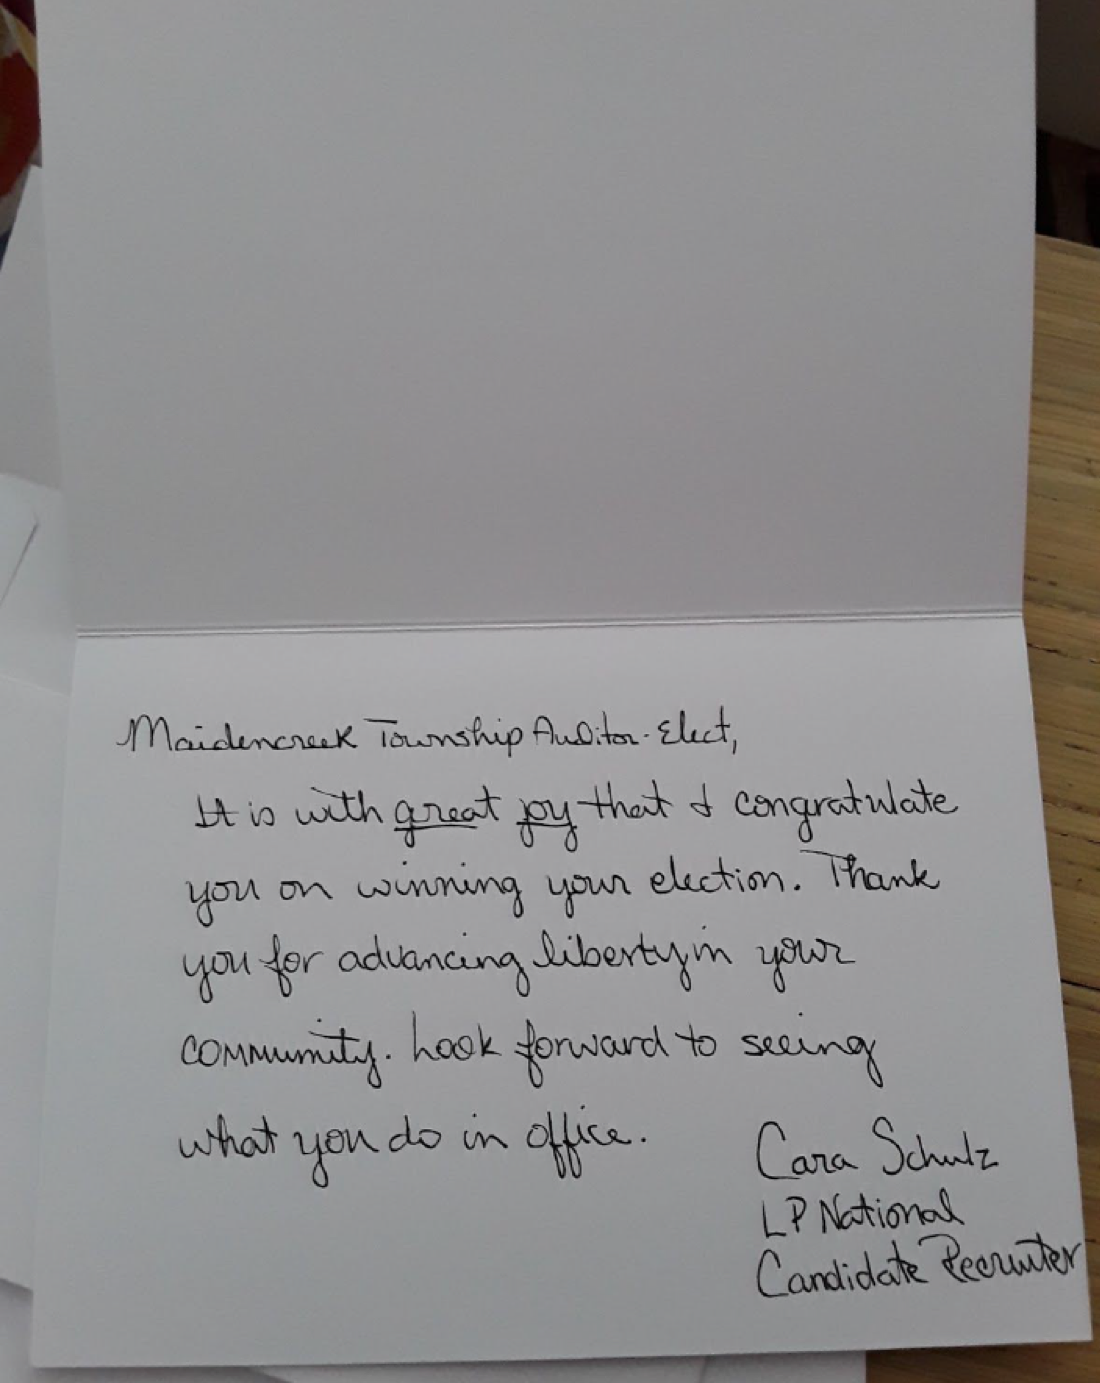 Maidencreek Township Auditor-Elect,
It is with great joy that I congratulate
you on winning your election. Thank
you for advancing liberty in your
community. Look forward to seeing
what you do in office.
Cara Schulz
LP National
Candidate Recruiter